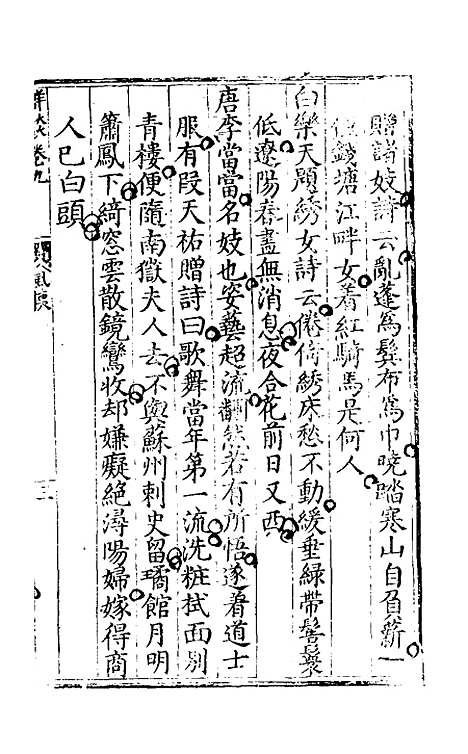 贈諸妓詩云亂蓬爲鬓布爲巾曉踏寒山自負薪一
種錢塘江畔女着紅騎馬是何人
白樂天題綉女詩云倦倚綉床愁不動緩垂緑帶髻鬟
低遼陽春盡無消息夜合花前日又西
唐李當當名妓也姿藝超流翻然若有所悟遂着道士
服有段天祐贈詩曰歌舞當年第一流洗粧拭面别
青樓便隨南嶽夫人去不與蘇州刺史留璚館月明
簫鳳下綺窓雲散鏡鸞收却嫌癡絶潯陽婦嫁得商
人已白頭
卷九